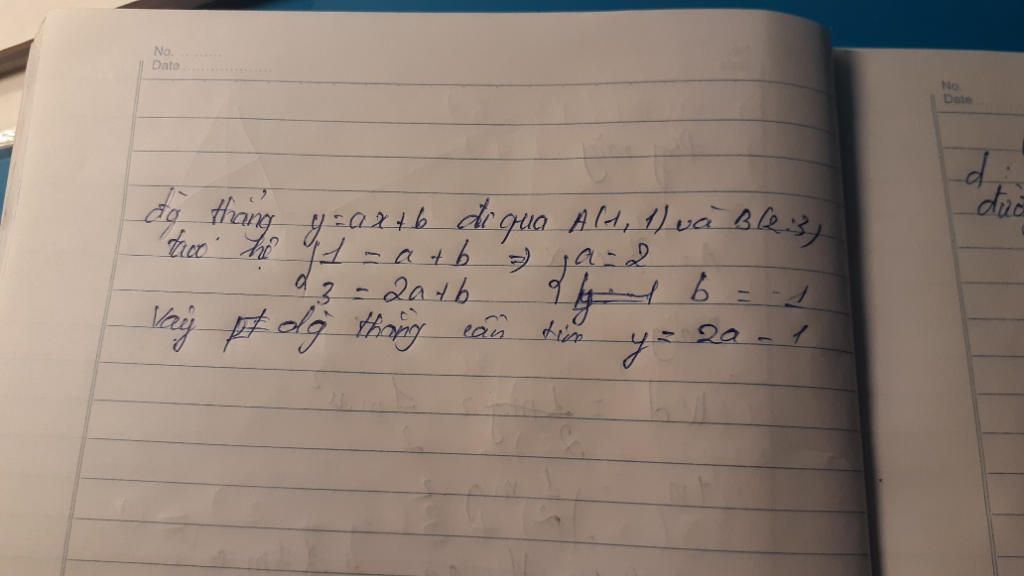 No. ............
Date ....................
đg thẳng y=ax+b đi qua A(1,1) và B(2;3)
hệ { 1 = a + b => { a=2
{ 3 = 2a+b { b = -1
Vậy pt đg thẳng cần tìm y = 2a - 1
No.
Date ...
d :
đườ